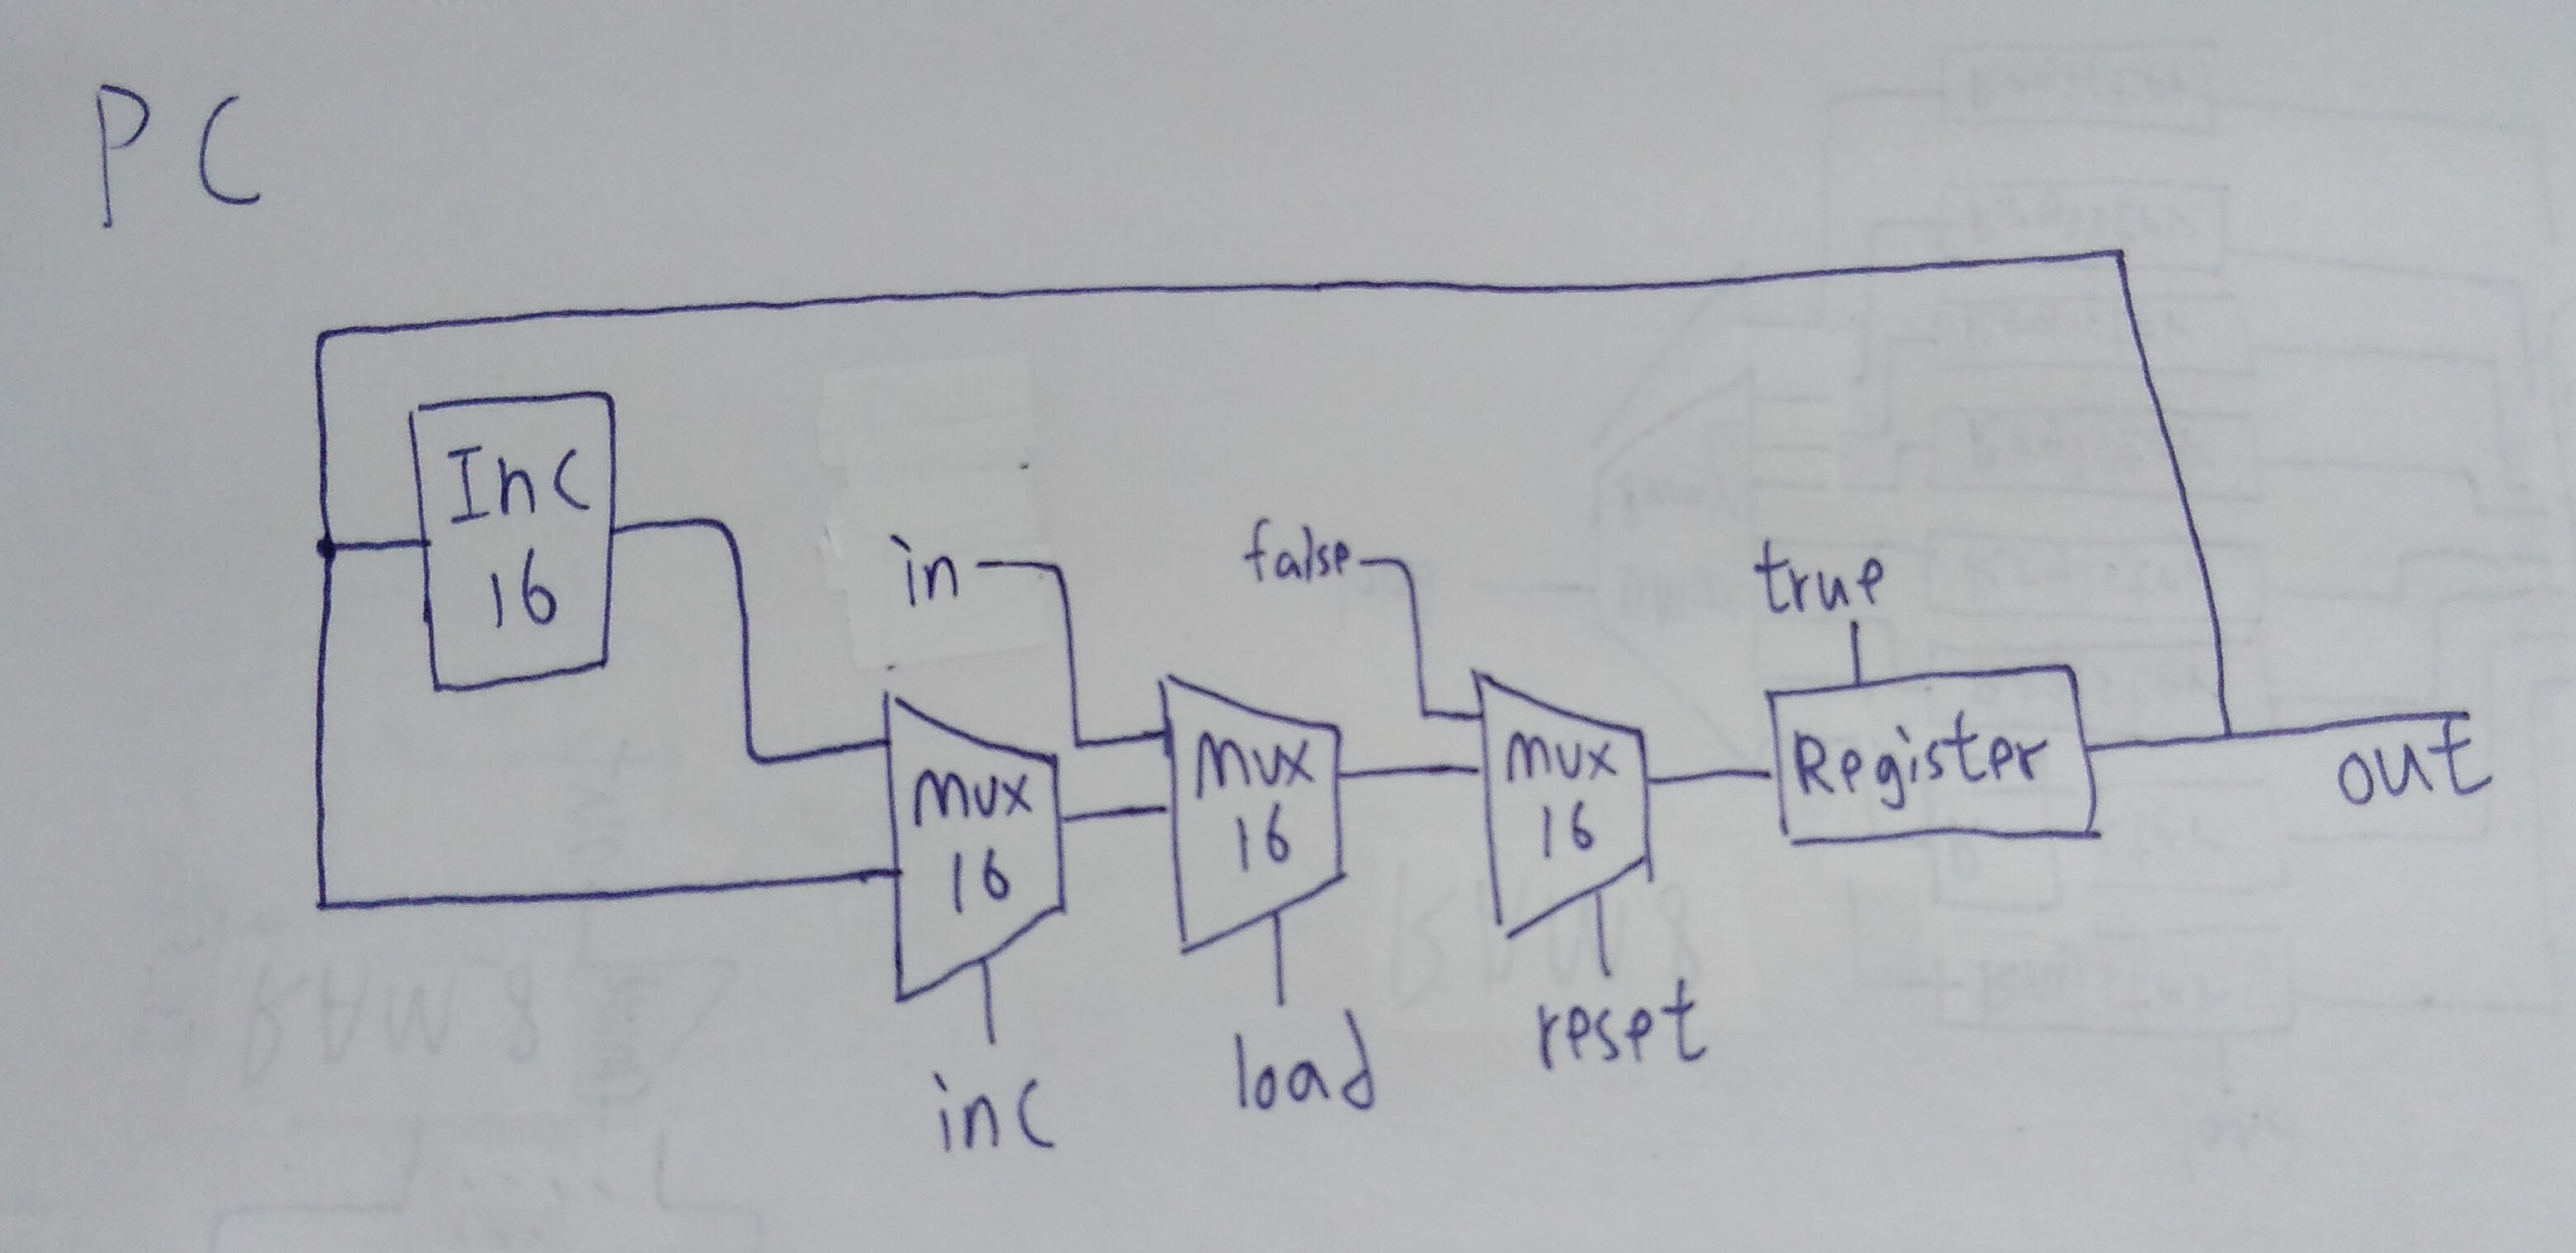 PC
Inc
16
in
false
true
mux
16
mux
16
mux
16
Register
out
inc
load
reset